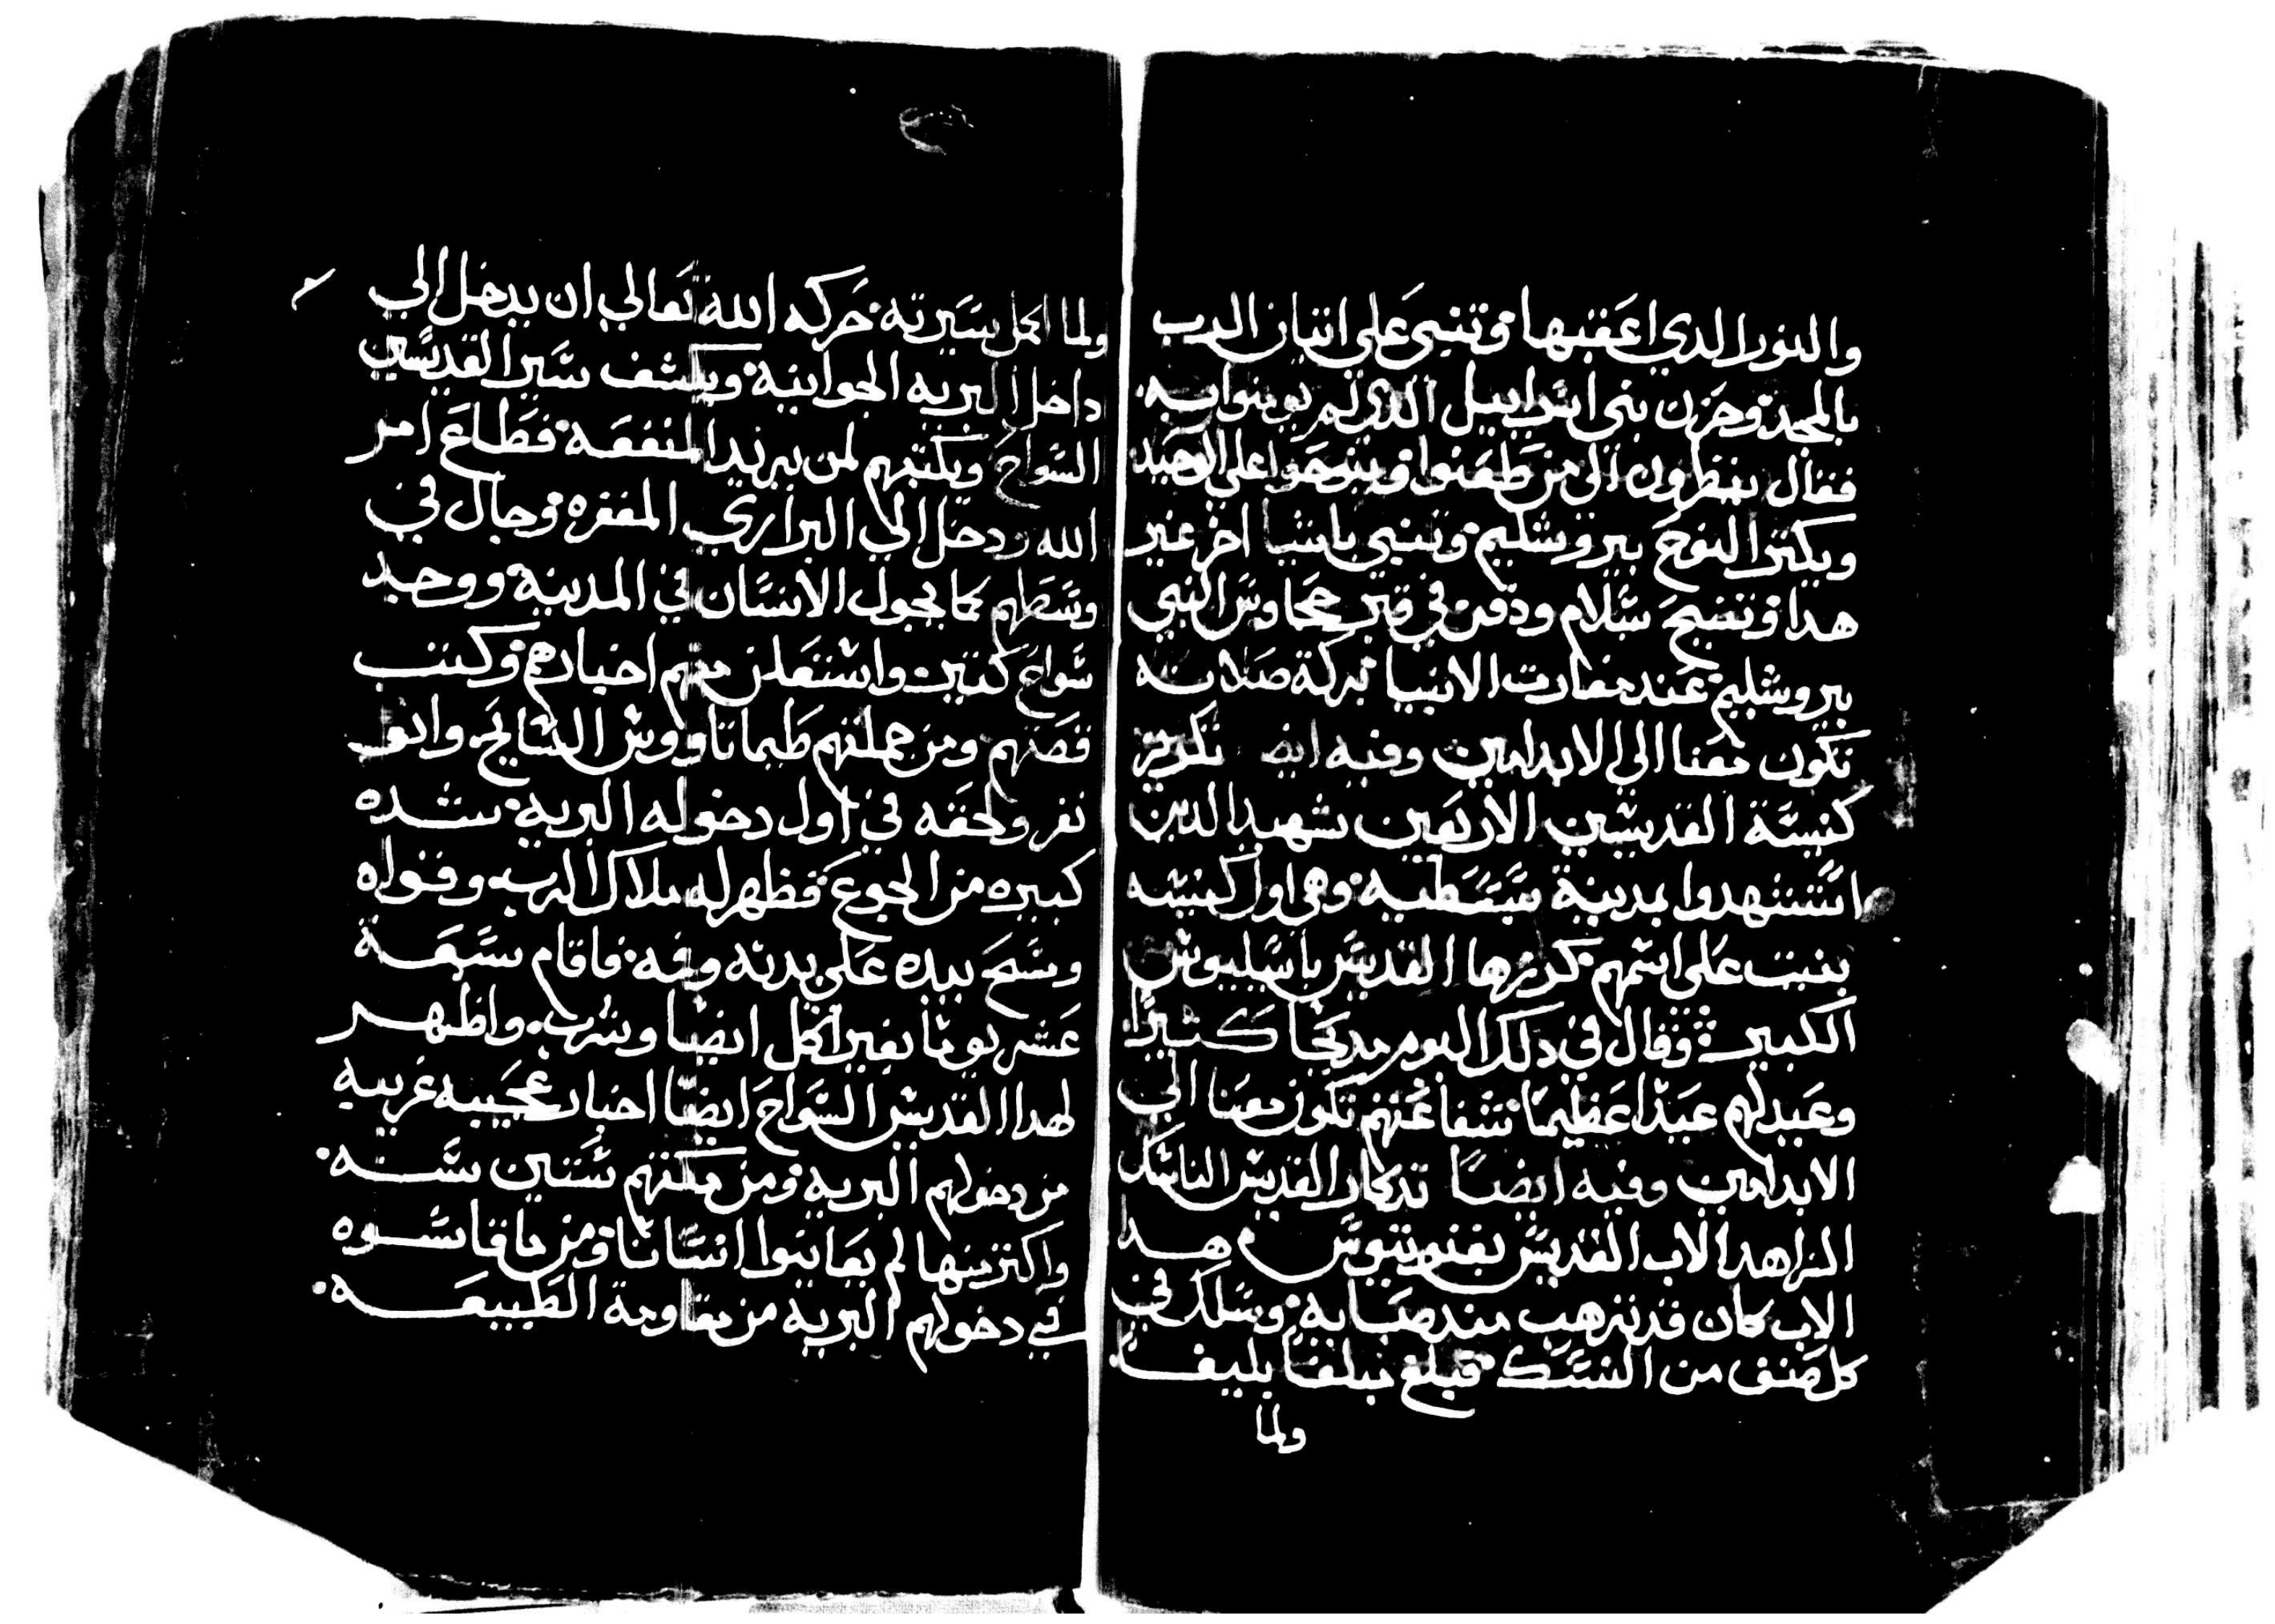 والنور الدي اعقبها وتنبي علي اتيان الرب
بالمجد وحزن بني اسراييل الدي لم يومنوا به
فقال ينظرون الي من طعنوا وينوحوا علي الوحيد
ويكتر النوح بيروشليم وتنبي باشيا اخر غير
هدا وتنيح بسلام ودفن في قبر حجاوس النبي
بيروشليم عند مغارت الانبيا بركة صلاته
تكون معنا الي الابد امين وفيه ايض تكريز
كنيسة القديسين الاربعين شهيد الدين
استشهدوا بمدينة سبسطيه وهى اول كنيسه
بنيت على اسمهم كرزها القديس باسيليوس
الكبير وقال في دلك اليوم مديحا كثيرا
وعيد لهم عيدا عظيما شفاعتهم تكون معنا الي
الابد امين وفيه ايضا تدكار القديس الناسك
الزاهد الاب القديس بفنوتيوس هدا
الاب كان قد ترهب مند صبايه وسلك في
كل صنف من النسك فبلغ مبلغا بليغا
ولما
ولما اكمل سيرته حركه الله تعالي ان يدخل الي
داخل البريه الجوانية ويكشف سير القديسين
السواح ويكتبهم لمن يريد المنفعة فطاع امر
الله ودخل الي البراري المقفره وجال في
وسطهم كما يجول الانسان في المدينة ووجد
سواح كتيرة واستعلن منهم اخبارهم وكتب
قصتهم ومن جملتهم طيماتاووس السايح وابو
نفر ولحقه في اول دخوله البرية شده
كبيره من الجوع فظهر له ملاك الرب وقواه
ومسح بيده على بدنه وفه فاقام سبعة
عشر يوما بغير اكل ايضا وشرب واظهر
لهدا القديس السواح ايضا اخبار عجيبه غريبه
من دخولهم البرية ومن مكتهم ستين سنه
واكتر منها لم يعاينوا انسانا ومن ما قاسوه
في دخولهم البرية من مقاومة الطبيعه